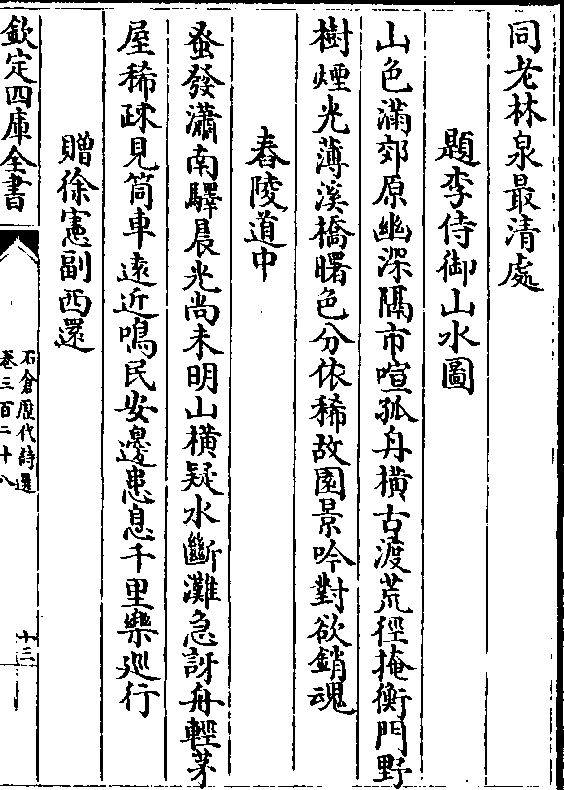 同老林泉最清處
題李侍御山水圖
山色滿郊原幽深隔市喧孤舟橫古渡荒徑掩衡門野
樹煙光薄溪橋曙色分依稀故園景吟對欲銷魂
舂陵道中
蚤發瀟南驛晨光尚未明山橫疑水斷灘急訝舟輕茅
屋稀疎見筒車遠近鳴民安邊患息千里樂廵行
贈徐憲副西還
欽定四庫全書
石倉歷代詩選
卷三百二十八
十三